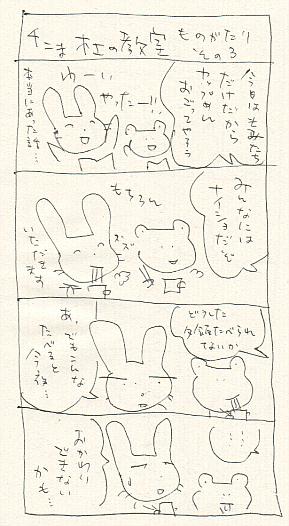 4こま杜の教室
ものがたり
その3
今日はもみたち
だけだから
カップめん
おごってやろう
やったー!!
わーい
本当にあった話…
みんなには
ナイショだぞ
もちろん
ズズ
いただきます
どうした
夕飯たべられ
ないか
あ、
でもこんな
たべると
今夜…
…
おかわり
できない
かも…